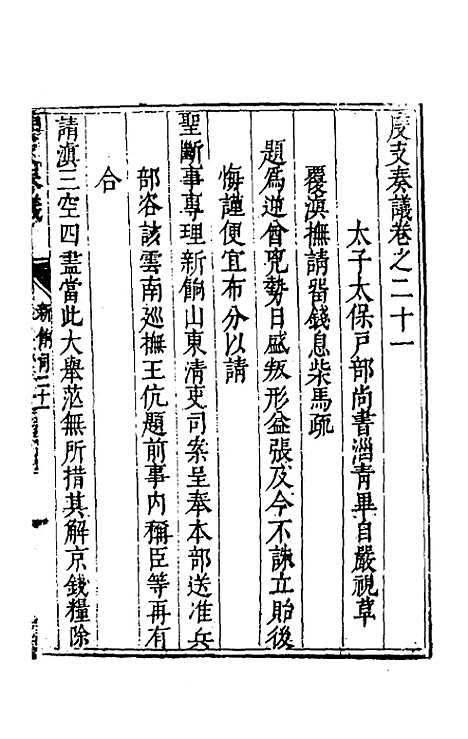 度支奏議卷之二十一
太子太保戸部尚書淄青畢自嚴視草
覆滇撫請留錢息柴馬疏
題爲逆酋兇勢日盛叛形益張及今不誅立貽後
悔謹便宜布分以請
聖斷事專理新餉山東清吏司案呈奉本部送准兵
部咨該雲南巡撫王伉題前事内稱臣等再有
合
請滇三空四盡當此大舉茫無所措其解京錢糧除
新餉司二十一